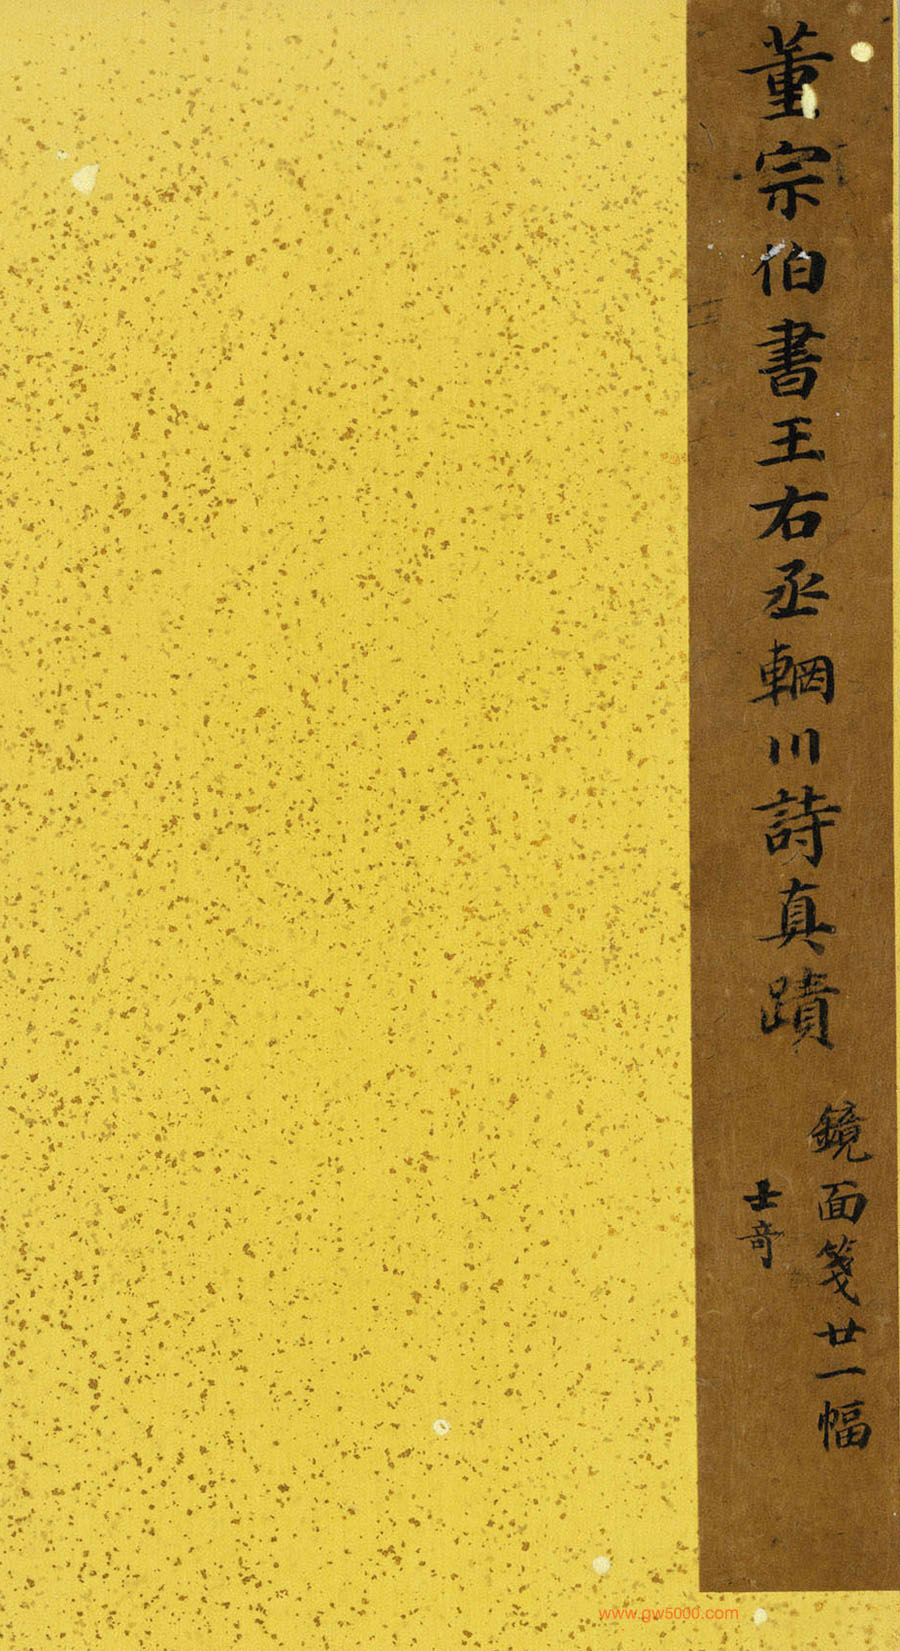 董宗伯書王右丞輞川詩真蹟
鏡面箋廿一幅
士奇
www.gw5000.com